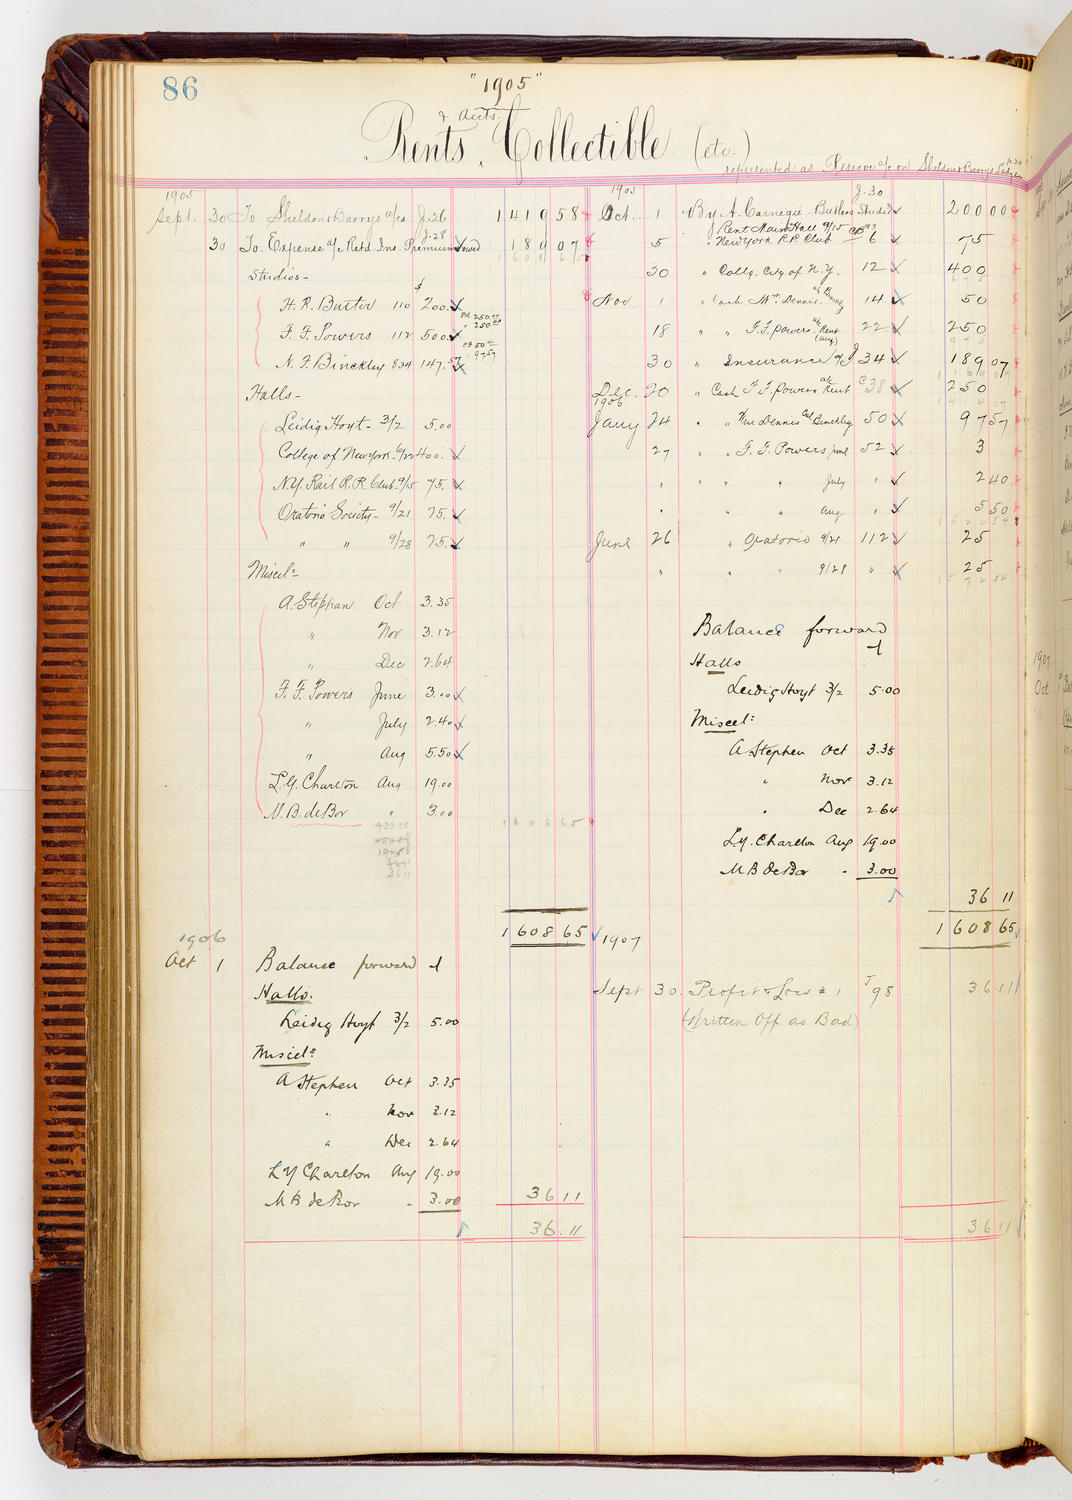 86
"1905"
& Accts.
Rents Collectible (etc.)
represented as Reserve a/c on Sheldon & Barrys
1905
Sept. 30 To Sheldon & Barrys a/cs J.26 1419 58
30 To Expense a/c Retd. Ins. Premium J.28 189 07
1608 65
Studios -
$
H. R. Butler 110 200.
F. F. Powers 112 500. Pd. 250.00 " 250.00
N. F. Binckley 834 147.57 50.00 97.57
Halls -
Leidig Hoyt - 3/2 5.00
College of Newyork. 400.
N.Y. Rail R.R. Club. 9/15 75.
Oratorio Society - 9/21 25.
" " 9/28 25.
Miscel:
A. Stephan Oct 3.35
" Nov 3.12
" Dec 2.64
F. F. Powers June 3.00
" July 2.40
" Aug 5.50
L. Y. Charlton Aug 19.00
M. B. deBor " 3.00
1608 65
1608 65
1906
Oct 1 Balance forward
Halls.
Leidig Hoyt 3/2 5.00
Miscel:
A Stephen Oct 3.35
" Nov 3.12
" Dec 2.64
L Y Charlton Aug 19.00
M B de Bor " 3.00 36 11
36.11
1905
J.30
Oct. 1 By A. Carnegie Butlers Studio 200 00
Rent Main Hall 9/15
5 " New York R.R. Club 6 75
30 " Collg. City of N.Y. 12 400
Nov 1 " Cash Mr. Dennis. a/c Binckley 14 50
18 " " F. F. Powers a/c Rent (Aug) 22 250
30 " Insurance a/c J 34 189 07
Dec. 20 " Cash F. F. Powers a/c Rent C 38 250
1906
Jany 24 " " Wm Dennis Binckley 50 97 57
27 " " F. F. Powers June 52 3
" " " " July " 2 40
" " " " Aug " 5 50
1522 54
June 26 " Oratorio 9/21 112 25
" " " 9/28 " 25
1572 54
Balance forward
Halls
Leidig Hoyt 3/2 5.00
Miscel:
A Stephen Oct 3.35
" Nov 3.12
" Dec 2.64
L Y. Charlton Aug 19.00
M B de Bor " 3.00
36 11
1608 65
1907
Sept 30. Profit & Loss # 1 J 98 36 11
(Written Off as Bad)
36 11
1907
Oct